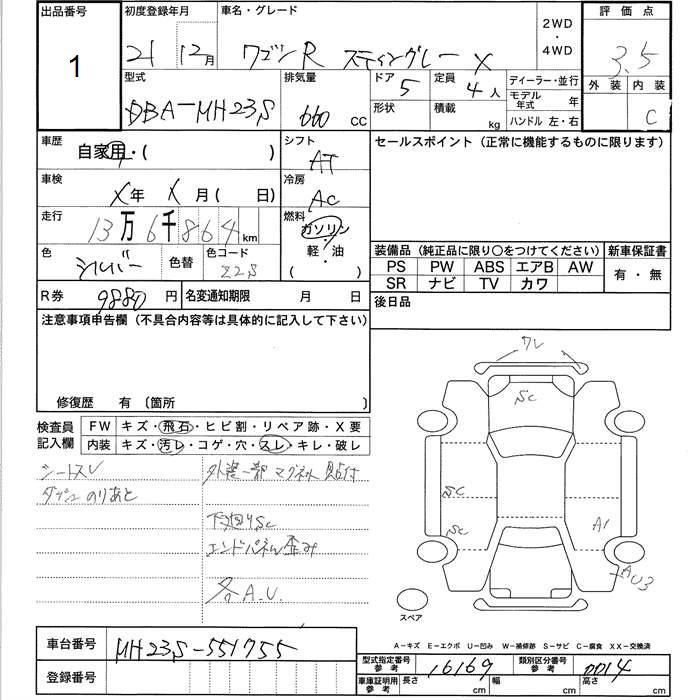 出品番号
1
初度登録年月
21 12月
車名・グレード
ワゴンR スティングレー X
2WD
・
4WD
評価点
3.5
型式
DBA-MH23S
排気量
660 CC
ドア 5
形状
定員 4人
積載 kg
ディーラー・並行
モデル年式 年
ハンドル 左・右
外装 内装
C
車歴
自家用・( )
車検
X年 X月( 日)
走行
13万6千864km
色
シルバー
色替
色コード
Z2S
シフト
AT
冷房
AC
燃料
ガソリン・
軽・油
( )
セールスポイント(正常に機能するものに限ります)
装備品(純正品に限り○をつけてください)
PS PW ABS エアB AW
SR ナビ TV カワ
新車保証書
有・無
R券 9880円
名変通知期限 月 日
後日品
注意事項申告欄(不具合内容等は具体的に記入して下さい)
修復歴 有 〔箇所 〕
検査員
記入欄
FW キズ・飛石・ヒビ割・リペア跡・X要
内装 キズ・汚レ・コゲ・穴・スレ・キレ・破レ
シートスレ
ダッシュのりあと
外装一部マグネット貼付
下廻りSc
エンドパネル歪み
各A.U.
ワレ
Sc
Sc
Sc
A1
AU3
スペア
A-キズ E-エクボ U-凹み W-補修跡 S-サビ C-腐食 XX-交換済
車台番号 MH23S-551755
登録番号
型式指定番号
参考
16169
類別区分番号
参考
0014
車庫証明用
参考
長さ cm 幅 cm 高さ cm